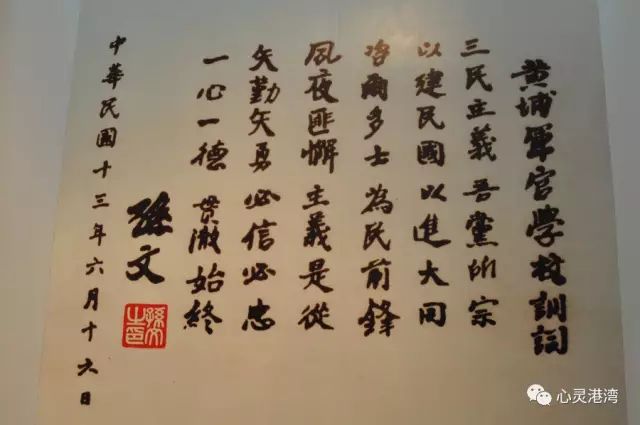 黄埔軍官學校訓詞
三民主義 吾黨所宗
以建民國 以進大同
咨爾多士 為民前鋒
夙夜匪懈 主義是從
矢勤矢勇 必信必忠
一心一德 貫澈始終
孫文
孫文之印
中華民國十三年六月十六日
心灵港湾